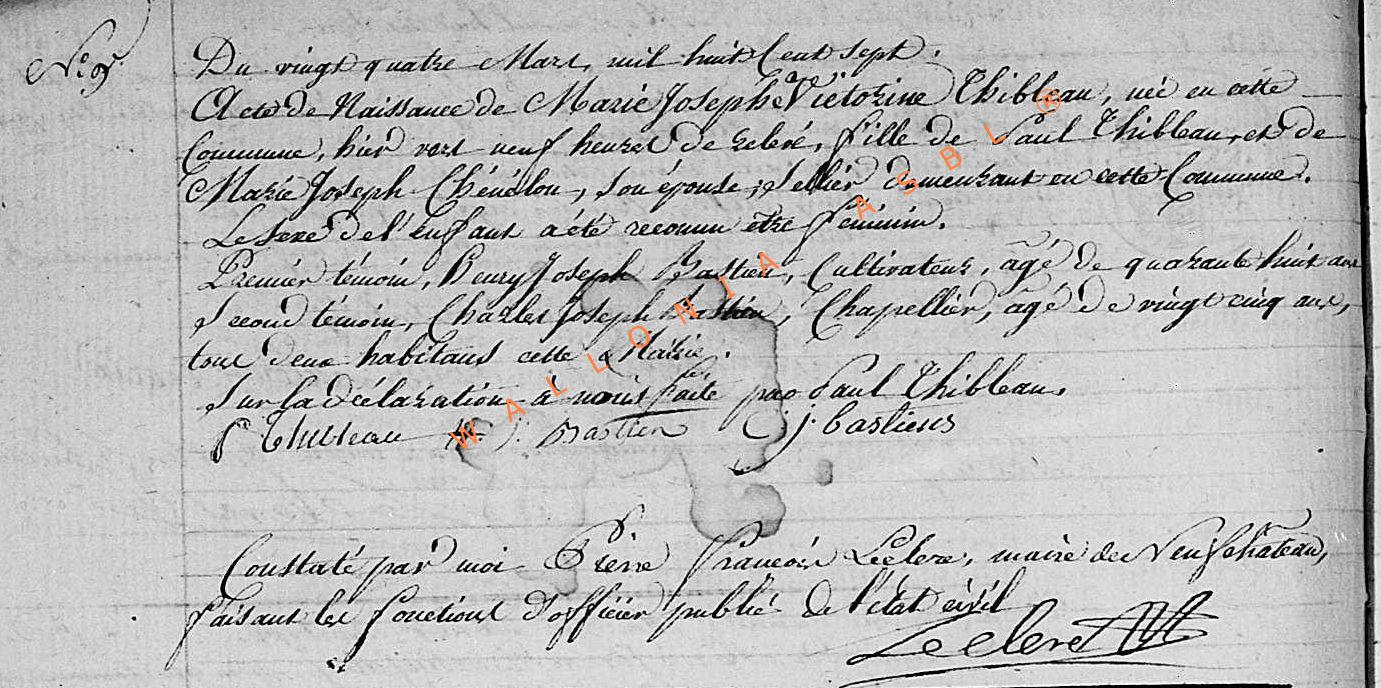 N.° 9.
Du vingt quatre Mars, mil huit Cent sept.
Acte de Naissance de Marie Josephe Victorine Thibleau, née en cette
Commune, hier vers neuf heures de relevé, fille de Paul Thibleau, et de
Marie Joseph Chénélou, son épouse, sellier demeurant en cette Commune.
Le sexe de l'enfant a été reconnu être féminin.
Premier témoin, Henry Joseph Bastien, Cultivateur, âgé de quarante huit ans
Second témoin, Charles Joseph Bastien, Chapellier, âgé de vingt cinq ans,
tous deux habitans cette Mairie.
Sur la déclaration à nous faite par Paul Thibleau.
P Thibleau H J. Bastien C j. bastiens
Constaté par moi Pierre François Leclerc, maire de Neufchâteau,
faisant les fonctions d'officier public de l'état civil
Leclerc
WALLONIA ASBL ®